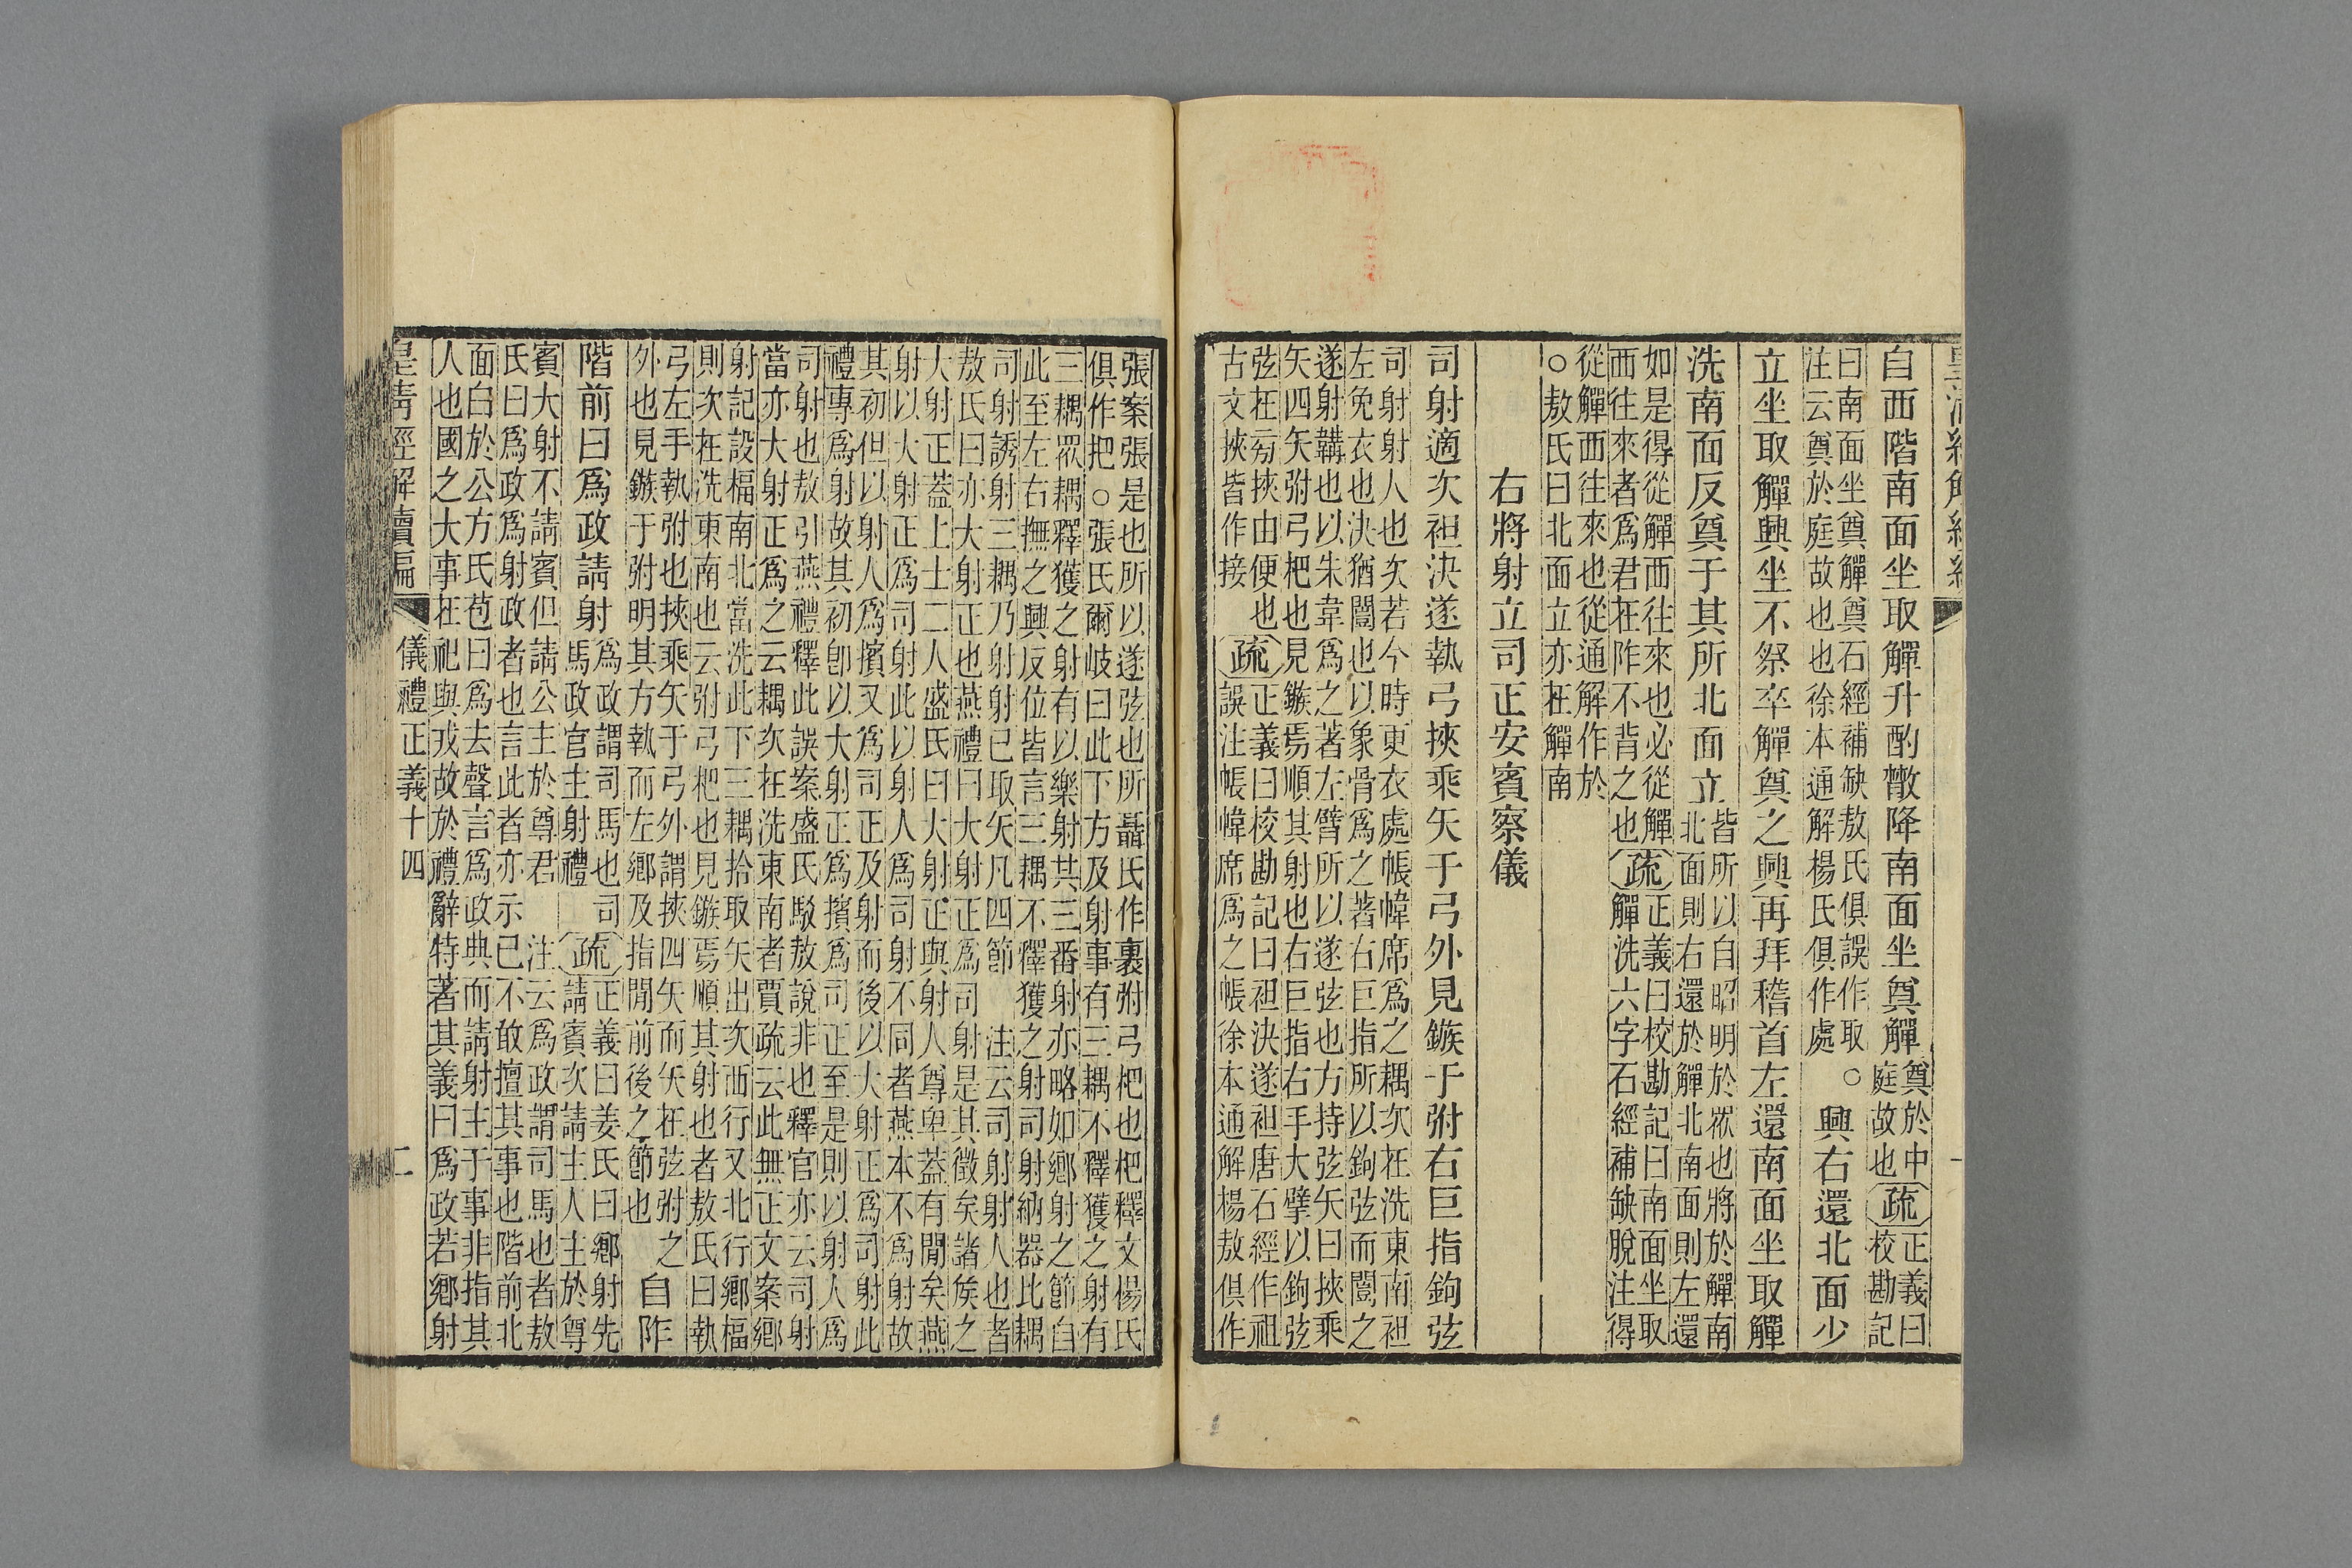 皇清經解續編
自西階南面坐取觶升酌散降南面坐奠觶奠於中
庭故也疏正義曰
校勘記
曰南面坐奠觶奠石經補缺敖氏俱誤作取○
注云奠於庭故也也徐本通解楊氏俱作處
興右還北面少
立坐取觶興坐不祭卒觶奠之興再拜稽首左還南面坐取觶
洗南面反奠于其所北面立皆所以自昭明於眾也將於觶南
北面則右還於觶北南面則左還
如是得從觶西往來也必從觶
西往來者爲君在阼不背之也疏正義曰校勘記曰南面坐取
觶洗六字石經補缺脫注得
從觶西往來也從通解作於
○敖氏曰北面立亦在觶南
右將射立司正安賓察儀
司射適次袒決遂執弓挾乘矢于弓外見鏃于弣右巨指鉤弦
司射射人也次若今時更衣處帳幃席爲之耦次在洗東南袒
左免衣也決猶闓也以象骨爲之著右巨指所以鉤弦而闓之
遂射韝也以朱韋爲之著左臂所以遂弦也方持弦矢曰挾乘
矢四矢弣弓杷也見鏃焉順其射也右巨指右手大擘以鉤弦
弦在旁挾由便也
古文挾皆作接
疏正義曰校勘記曰袒決遂袒唐石經作袓
誤注帳幃席爲之帳徐本通解楊敖俱作
張案張是也所以遂弦也所聶氏作裹弣弓杷也杷釋文楊氏
俱作把○張氏爾岐曰此下方及射事有三耦不釋獲之射有
三耦眾耦釋獲之射有以樂射其三番射亦略如鄉射之節自
此至左右撫之興反位皆言三耦不釋獲之射司射納器比耦
司射誘射三耦乃射射已取矢凡四節注云司射射人也者
敖氏曰亦大射正也燕禮曰大射正爲司射是其徵矣諸矦之
大射正蓋上士二人盛氏曰大射正與射人尊卑蓋有閒矣燕
射以大射正爲司射此以射人爲司射不同者燕本不爲射故
其初但以射人爲擯又爲司正及射而後以大射正爲司射此
禮專爲射故其初卽以大射正爲擯爲司正至是則以射人爲
司射也敖引燕禮釋此誤案盛氏駁敖說非也釋官亦云司射
當亦大射正爲之云耦次在洗東南者賈疏云此無正文案鄉
射記設楅南北當洗此下三耦拾取矢出次西行又北行鄉楅
則次在洗東南也云弣弓杷也見鏃焉順其射也者敖氏曰執
弓左手執弣也挾乘矢于弓外謂挾四矢而矢在弦弣之
外也見鏃于弣明其方執而左鄉及指閒前後之節也
自阼
階前曰爲政請射爲政謂司馬也司
馬政官主射禮疏正義曰姜氏曰鄉射先
請賓次請主人主於尊
賓大射不請賓但請公主於尊君注云爲政謂司馬也者敖
氏曰爲政爲射政者也言此者亦示已不敢擅其事也階前北
面白於公方氏苞曰爲去聲言爲政典而請射主于事非指其
人也國之大事在祀與戎故於禮辭特著其義曰爲政若鄉射
皇清經解續編
儀禮正義十四
二